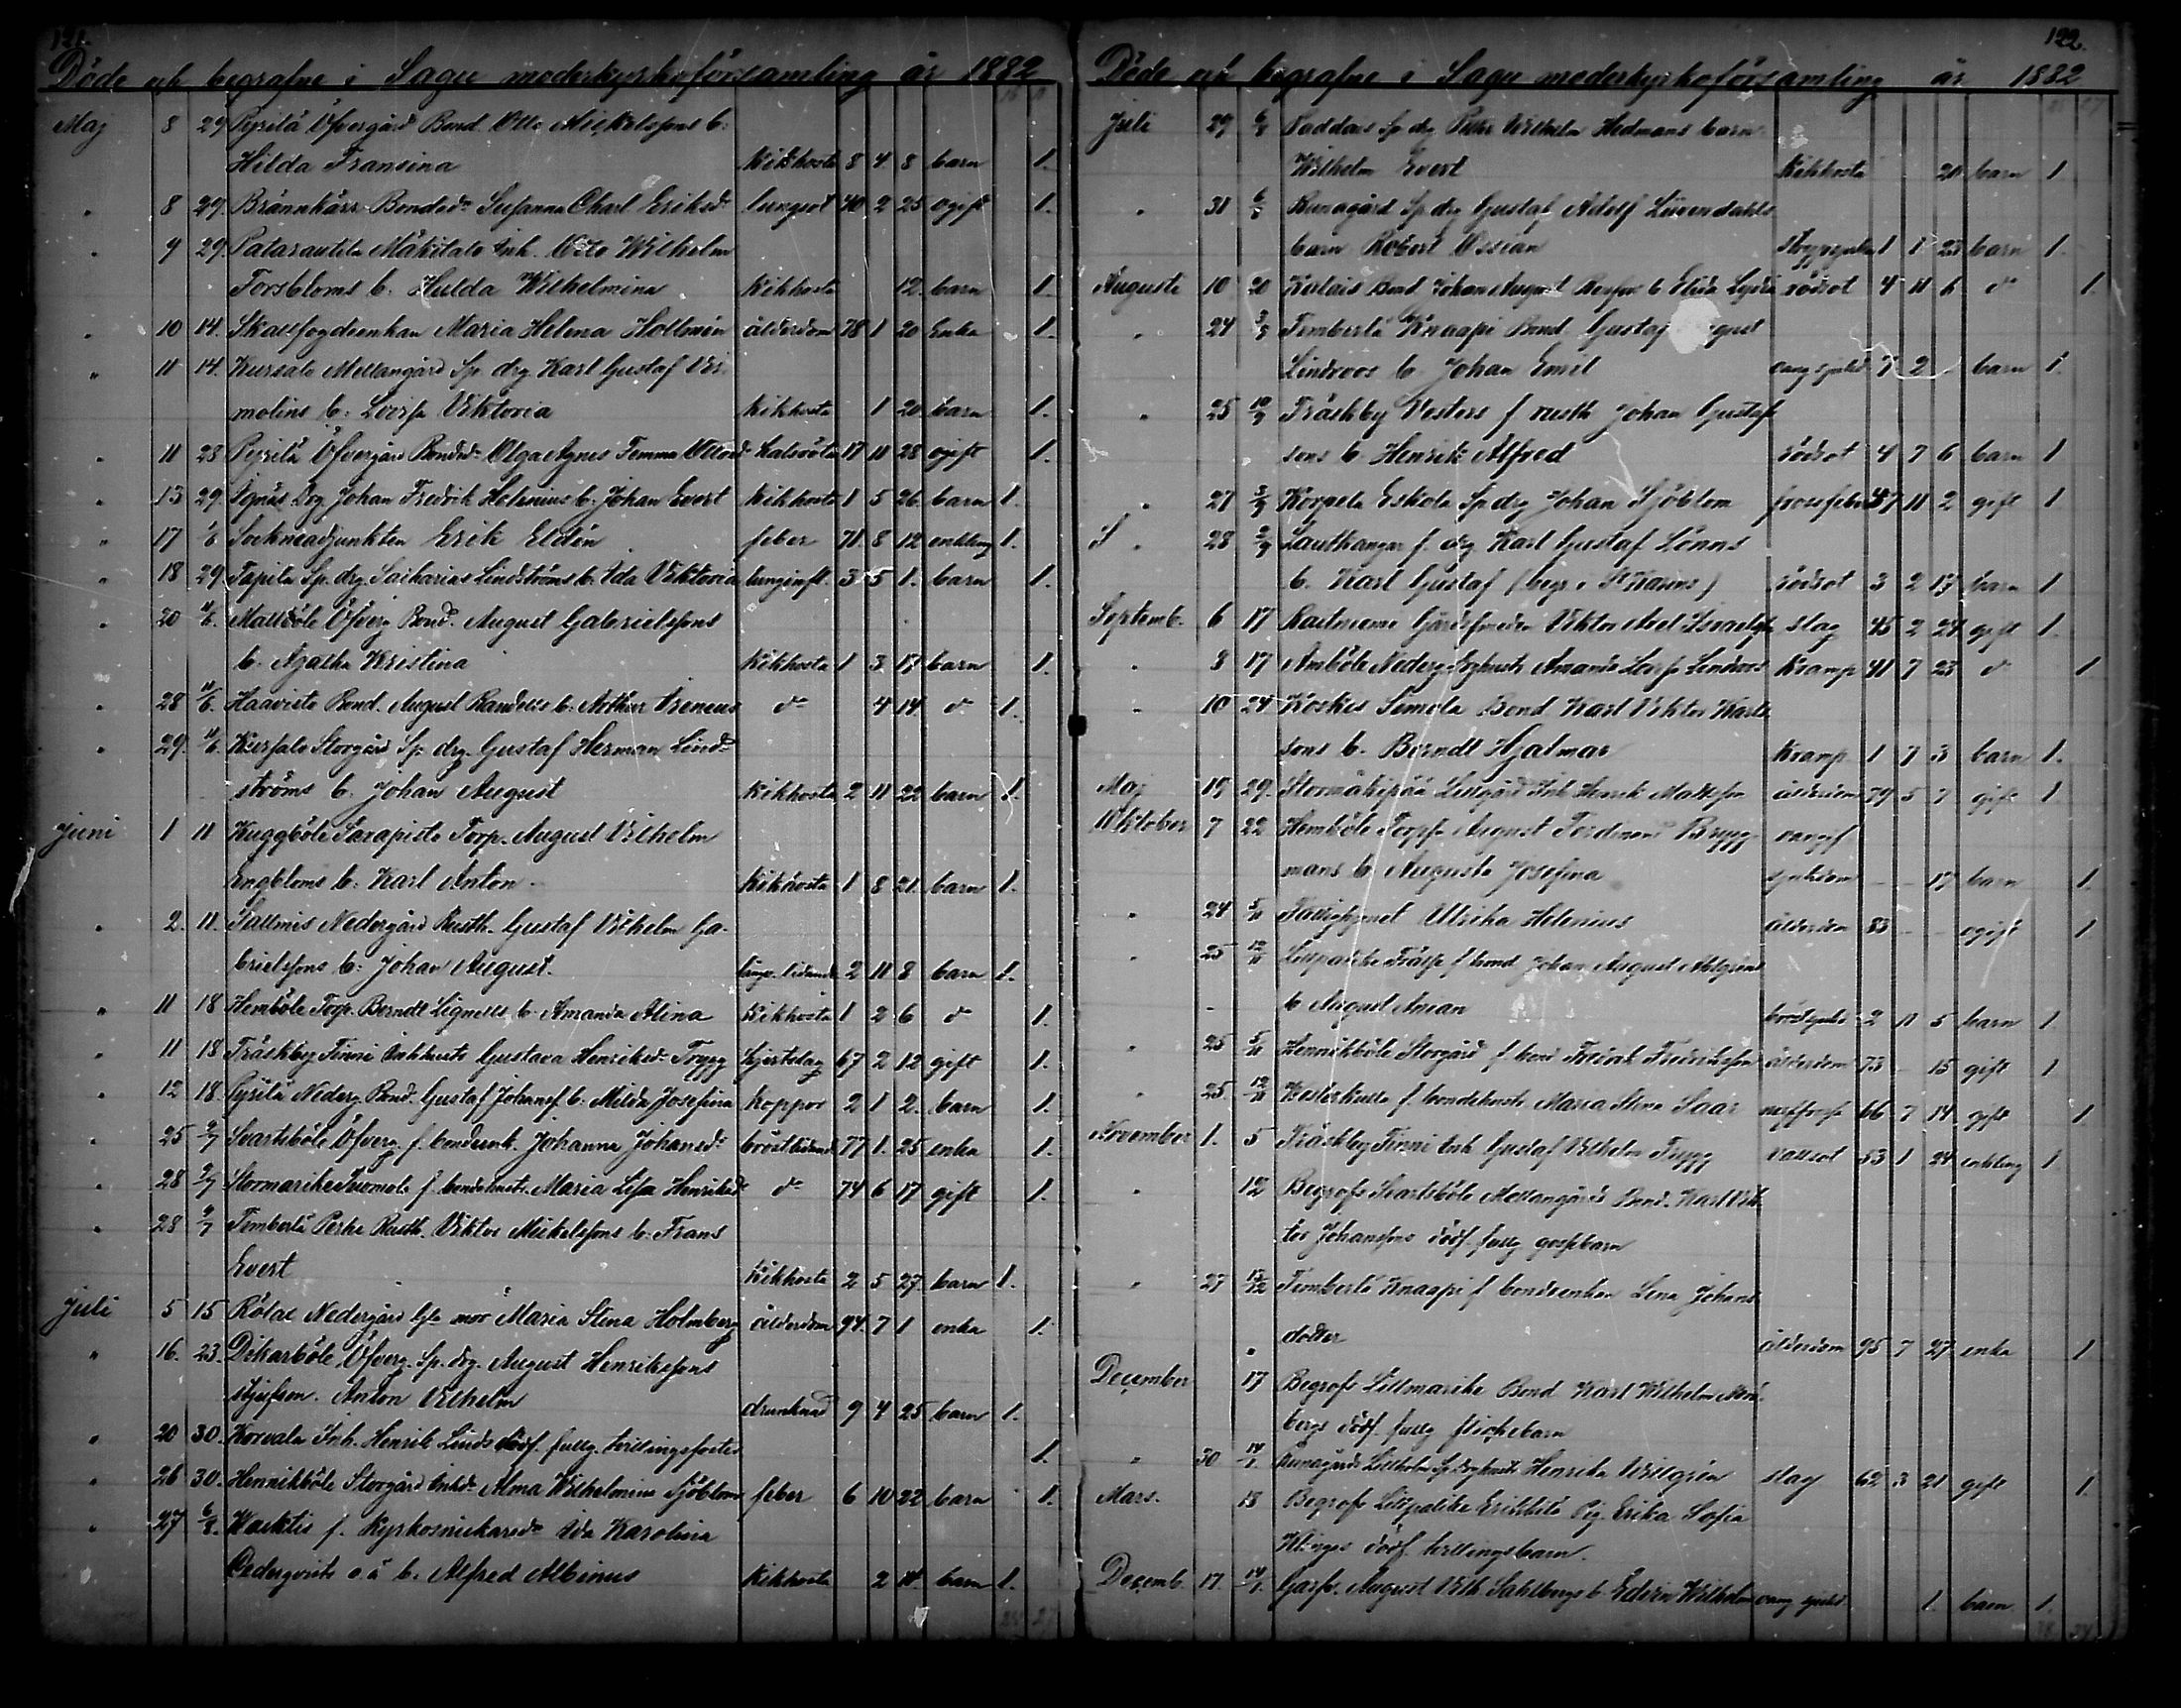 121.
Döde och begrafne i Sagu moderkyrkoförsamling år 1882
Maj 8 29 Pyrilä Öfvergård Bond. Otto Mickelssons b:
Hilda Fransina Kikhosta 8 4 8 barn 1.
" 8 29. Brännkärr Bondedr Susanna Charl Eriksdr lungsot 40 2 25 ogift 1.
" 9 29. Patarautila Mäkitalo Inh. Otto Wilhelm
Forsbloms b. Hulda Wilhelmina Kikhosta 12 barn 1.
" 10 14. Skallfogdeenkan Maria Helena Hollmén ålderdom 78 1 20 Enka 1.
" 11 14. Kursalo Mellangård Sp drg Karl Gustaf
molins b: Lovisa Viktoria Kikhosta 1 20 barn 1.
" 11 28 Pyrilä Öfvergård Bondedr Olga Agnes Emma Ottosdr halsröta 17 11 28 ogift 1.
" 13 29. Drg. Johan Fredrik Helenius b. Johan Evert Kikhosta 1 5 26. barn 1.
" 17 1/6 Sockneadjunkten Erik Eldén feber 71. 8 12 enkling 1.
" 18 29 Tapila Sp. drg. Sacharias Lindströms b. Ida Viktoria lunginfl. 3 5 1. barn 1.
" 20 11/6. Mattböle Öfverg Bond. August Gabrielssons
b. Agatha Kristina Kikhosta 1 3 17 barn 1.
" 28 11/6. Haavisto Bond. August Randells b. Arthur Ireneus do 4 14 do 1.
" 29. 11/6. Kursalo Storgård Sp. drg. Gustaf Herman Lind-
ströms b. Johan August Kikhosta 2 11 22 barn 1.
Juni 1 11 Kuggböle Sarapisto Torp. August Vilhelm
Engbloms b. Karl Anton Kikhosta 1 8 21. barn 1.
" 2. 11. Sallmis Nedergård Rusth. Gustaf Vilhelm Ga-
brielssons b: Johan August. 2 11 8 barn 1.
" 11 18 Hemböle Torp. Berndt Lignells b. Amanda Alina Kikhosta 1 2 6 do 1.
" 11 18 Träskby Finni Inhhustr Gustava Henriksdr Trygg hjertslag 67 2 12 gift 1.
" 12 18. Pyrilä Nederg. Bond. Gustaf Johanss. b. Milda Josefina Koppor 2 1 2. barn 1.
" 25 2/7 Svartsböle Öfverg. f. bondeenk. Johanna Johansdr bröstlidande 77 1. 25 enka 1.
" 28 2/7 Stormarike Tuomola f. bondehustr. Maria Lisa Henriksdr do 74 6 17 gift 1.
" 28 9/7 Timberlä Perhe Rusth. Viktor Mickelssons b. Frans
Evert Kikhosta 2 5 27 barn 1.
Juli 5 15 Rölax Nedergård mor Maria Stina Holmberg ålderdom 94. 7 1 enka 1.
" 16. 23. Dikarböle Öfverg. Sp. drg. August Henrikssons
styfson. Anton Vilhelm drunknad 9 4 25 barn 1.
" 20 30. Korvala Inh. Henrik Linds dödf. fullg. tvillingsfoster 1.
" 26 30. Hennikböle Storgård Inhdr Alma Wilhelmina Sjöblom feber 6 10 22 barn 1.
" 27 6/8. f. Kyrkosnickaredr Ida Karolina
Cederqvists o.ä b. Alfred Albinus Kikhosta 2 11. barn 1.
122.
Döde och begrafne i Sagu moderkyrkoförsamling år 1882
Juli 29 6/8 Paddais Sp drg Peter Vilhelm Hedmans barn
Wilhelm Evert Kikhosta 21 barn 1
" 31 6/8 Runagård Sp drg Gustaf Adolf Lövendahls
barn Robert Ossian 1 1 23 barn 1.
Augusti 10 20 Bond Johan August b Elida Lydia rödsot 4 11 6 do 1.
" 24 3/9 Timberlä Knaapi Bond Gustaf
Lindroos b Johan Emil 7 2 barn 1.
" 25 10/9 Träskby Vesters f rusth Johan Gustafs
sons b. Henrik Alfred rödsot 4 7 6 barn 1
" 27 3/9 Korpela Eskola Sp drg Johan Sjöblom 11 2 gift 1
S " 28 3/9 Lauthangar f. drg Karl Gustaf Lönns
b. Karl Gustaf (begr. i St Karins) rödsot 3 2 17 barn 1
Septemb. 6 17 Viktor Axel slag 45 2 24 gift 1.
" 8 17 Amböle Nederg. Amanda Lovisa Lindroos Kramp 41 7 23 do 1
" 10 24 Koskis Simola Bond Karl Viktor Karls
sons b. Berndt Hjalmar Kramp 1 7 3 barn 1.
Maj 19 29. Lillgård Inh Henrik Mattsson ålderdom 79 5 7 gift 1
Oktober 7 22 Hemböle August Ferdinand Brygg-
mans b Augusta Josefina sjukdom 17 barn 1.
" 24 5/11 Fattighjonet Ulrika Helenius ålderdom 83 ogift 1
" 25 12/11 f. bond Johan August Ahlgrens
b August Aman 2 11 5 barn 1
" 25 5/11 Hennikböle Storgård f bond Fredrik Fredriksson ålderdom 73 15 gift 1
" 25. 12/11 f. bondehustr Maria Stina Saar 66 7 14 gift 1
November 1. 5 Träskby Finni Inh Gustaf Vilhelm Trygg vattsot 53 1 24 enkling 1
" 12 Begrofs Svartsböle Mellangårds Bond. Karl Vik-
tor Johanssons dödf. fullg gossebarn
" 27 13/12 Timberlä Knaapi f bondeenkan Lena Johans
dotter ålderdom 95 7 27 enka 1
December 17 Begrofs Lillmarike Bond Karl Wilhelm
bergs dödf. fullg flickebarn
" 30 14/1. Runagårds Lillholm Henrika Willgrén slag 62 3 21 gift 1
Mars. 18 Begrofs Pig. Erika Sofia
Klinges dödf. tvillingsbarn.
Decemb. 17. 14/1. August Vilh Sahlbergs b. Edvin Wilhelm 1 barn 1.